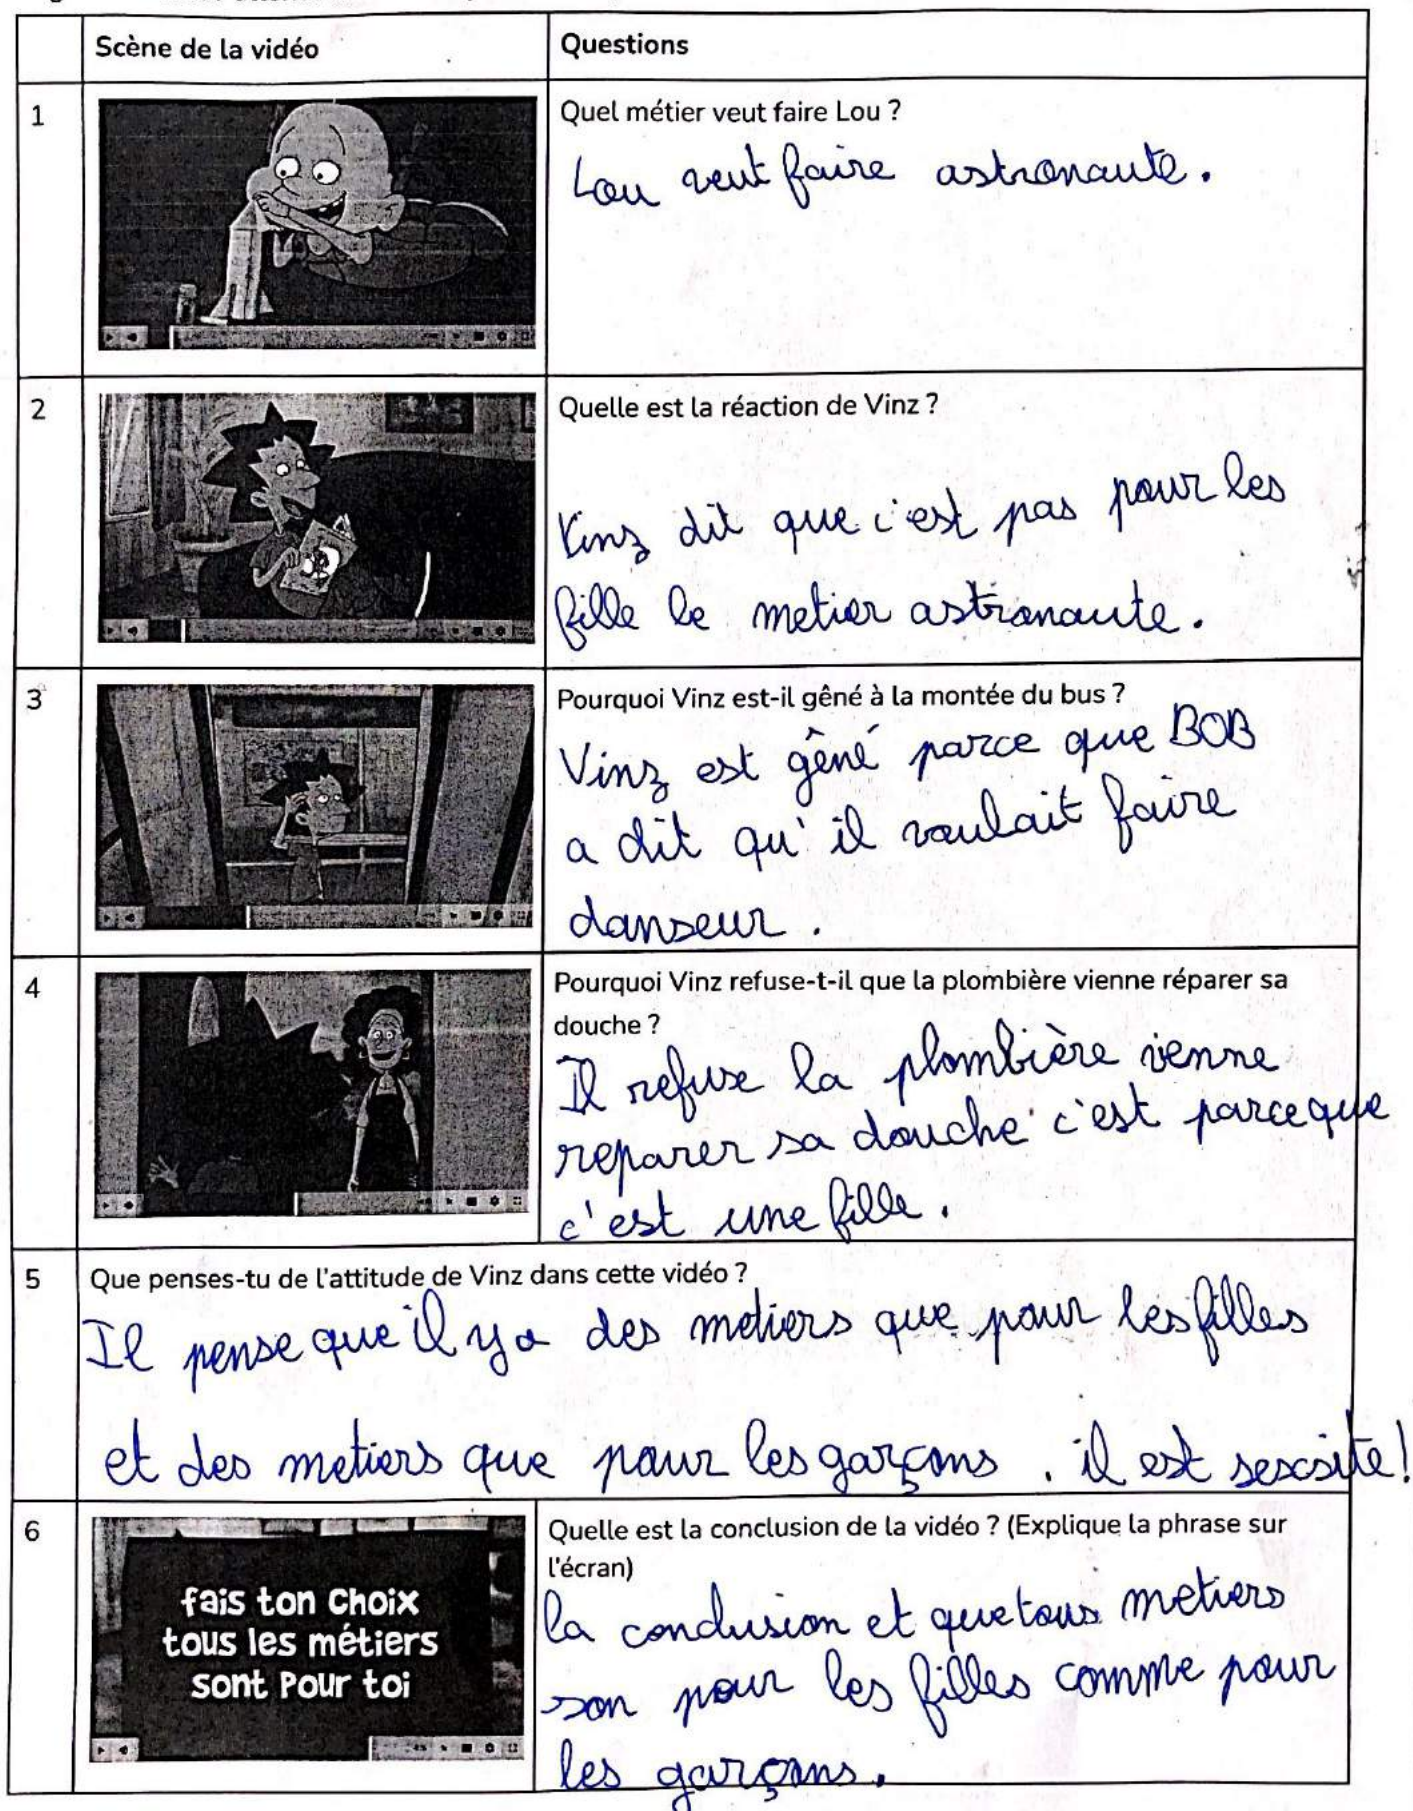 Scène de la vidéo
Questions
1
Quel métier veut faire Lou ?
Lou veut faire astronaute.
2
Quelle est la réaction de Vinz ?
Vinz dit que c'est pas pour les
fille le metier astronaute.
3
Pourquoi Vinz est-il gêné à la montée du bus ?
Vinz est gêné parce que BOB
a dit qu'il voulait faire
danseur.
4
Pourquoi Vinz refuse-t-il que la plombière vienne réparer sa
douche ?
Il refuse la plombière vienne
reparer sa douche c'est parceque
c'est une fille.
5
Que penses-tu de l'attitude de Vinz dans cette vidéo ?
Il pense que il y a des metiers que pour les filles
et des metiers que pour les garçons. il est sexsite!
6
fais ton choix
tous les métiers
sont pour toi
Quelle est la conclusion de la vidéo ? (Explique la phrase sur
l'écran)
la conclusion et que tous metiers
son pour les filles comme pour
les garçons.